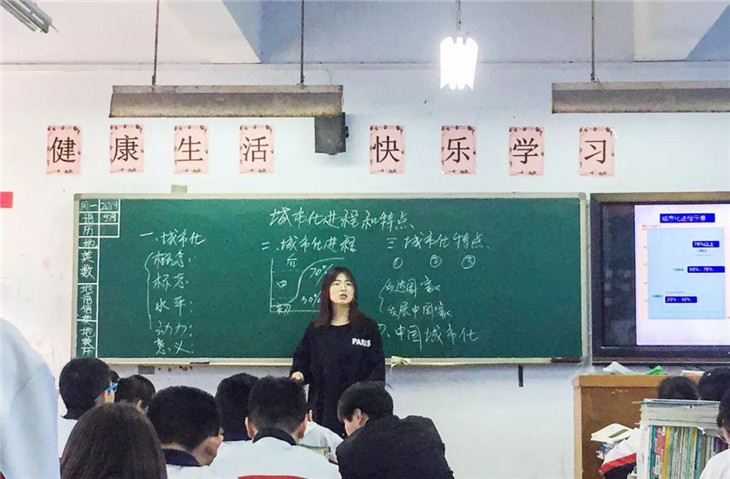 健康生活 快乐学习
周一 2019
语 5月
历
地
英
数
地
英
城市化进程和特点
一、城市化
概念：
标志：
水平：
动力：
意义：
二、城市化进程
后
70%
中
30%
初
三、城市化特点
① ② ③
发达国家
发展中国家
四、中国城市化
PARIS
城市化进程示意
70%以上